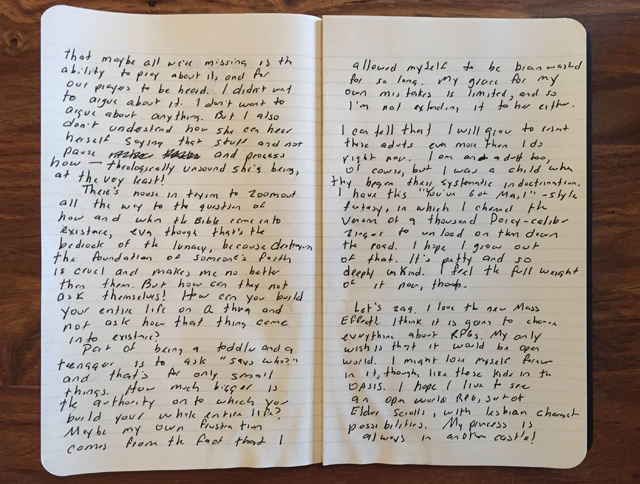 that maybe all we're missing is th
ability to pray about it, and for
our prayes to be heard. I didn't want
to argue about it. I don't want to
argue about anything. But I also
don't understand how she can hear
herself saying that stuff and not
pause and process
how — theologically unsound she's being,
at the very least!
There's no use in trying to zoom out
all the way to the question of
how and when the Bible came into
existence, even though that's the
bedrock of the lunacy, because destroying
the foundation of someone's faith
is cruel and makes me no better
than them. But how can they not
ask themselves! How can you build
your entire life on a thing and
not ask how that thing came
into existence?
Part of being a toddler and a
teenager is to ask "says who?"
and that's for only small
things. How much bigger is
the authority on to which you
build your whole entire life?
Maybe my own frustration
comes from the fact that I
allowed myself to be brainwashed
for so long. My grace for my
own mistakes is limited, and so
I'm not extending it to her either.
I can tell that I will grow to resent
these adults even more than I do
right now. I am an adult too,
of course, but I was a child when
they began their systematic indoctrination.
I have this "You've Got Mail"-style
fantasy, in which I channel the
venom of a thousand Darcy-caliber
zingers to unload on them down
the road. I hope I grow out
of that. It's petty and so
deeply unkind. I feel the full weight
of it now, though.
Let's zag. I love the new Mass
Effect! I think it is going to change
everything about RPGs. My only
wish is that it would be open
world. I might lose myself forever
in it, though, like those kids in th
OASIS. I hope I live to see
an open world RPG, sort of
Elder Scrolls, with lesbian character
possibilities. My princess is
always in another castle!